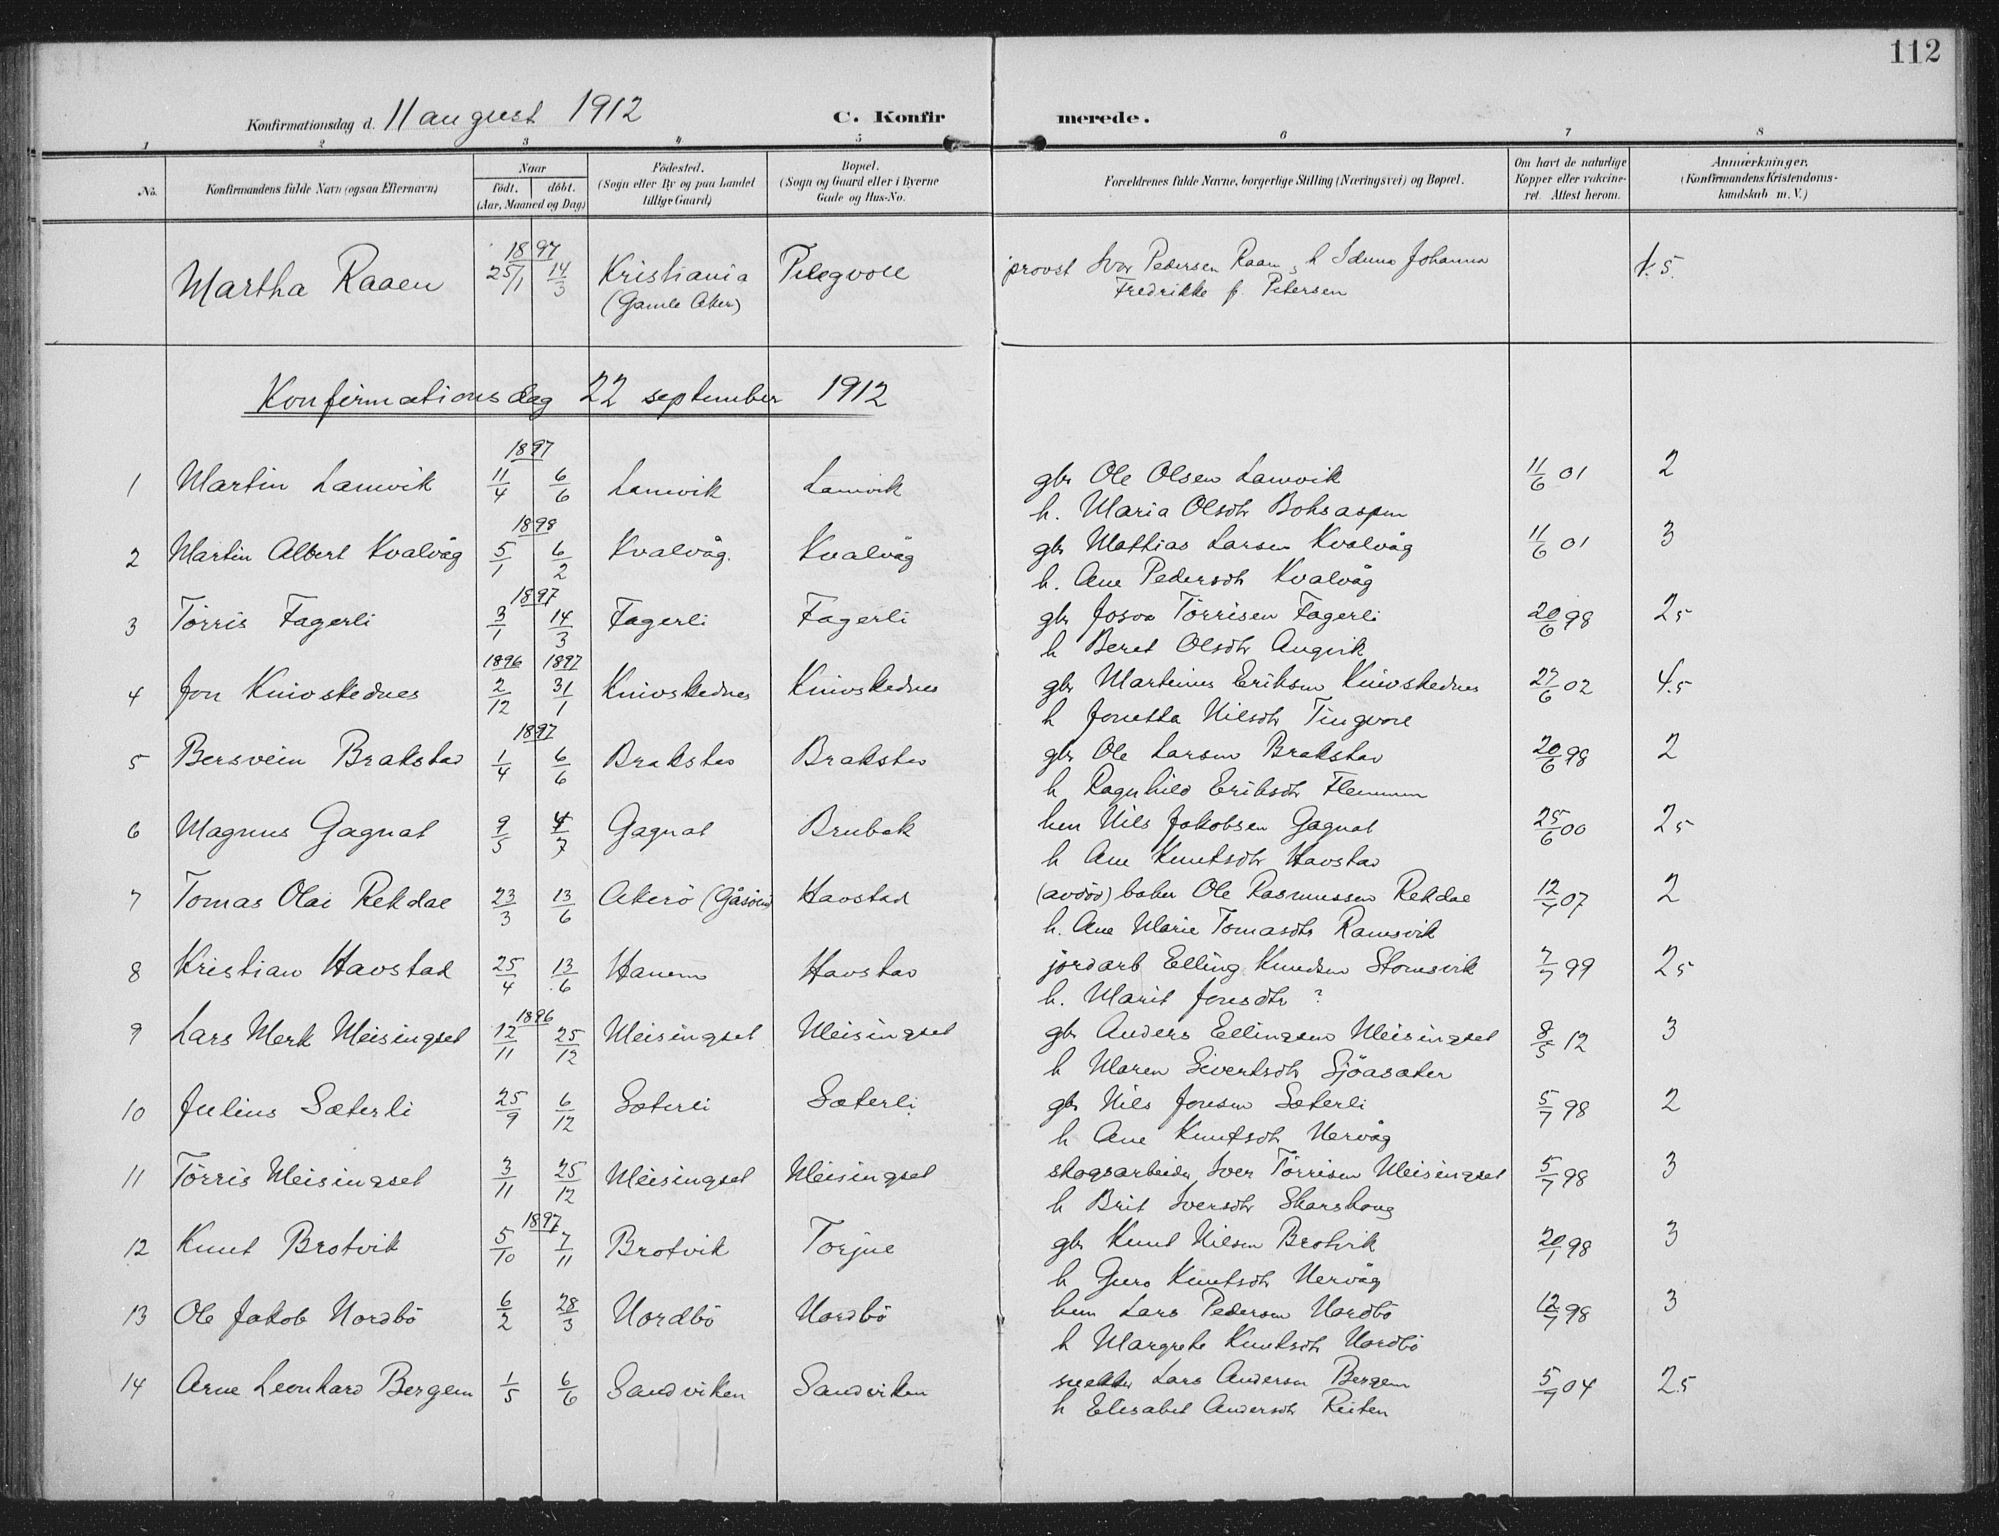 112
Konfirmationsdag d. 11 august 1912 C. Konfir merede.
1 2 3 4 5 6 7 8
No. Konfirmandens fulde Navn (ogsaa Efternavn) Naar födt. döbt. (Aar, Maaned og Dag) Födested. (Sogn eller By og paa Landet tillige Gaard) Bopæl. (Sogn og Gaard eller i Byerne Gade og Hus-No. Forældrenes fulde Navne, borgerlige Stilling (Næringsvei) og Bopæl. Om havt de naturlige Kopper eller vakcineret. Attest herom. Anmærkninger. (Konfirmandens Kristendomskundskab m. V.)
1897
Martha Raaen 25/1 14/3 Kristiania Tingvoll provst Ivar Pedersen Raaen, h Iduna Johanna 1.5.
(Gamle Aker) Fredrikke f. Petersen
Konfirmationsdag 22 september 1912
1897
1 Martin Lamvik 11/4 6/6 Lamvik Lamvik gbr Ole Olsen Lamvik 11/6 01 2
h. Maria Olsdtr Boksaspen
1898
2 Martin Albert Kvalvåg 5/1 6/2 Kvalvåg. Kvalvåg gbr Mathias Larsen Kvalvåg 11/6 01 3
h. Ane Pedersdtr Kvalvåg
1897
3 Törris Fagerli 3/1 14/3 Fagerli Fagerli gbr Josva Törrisen Fagerli 20/6 98 2.5
h Beret Olsdtr Angvik
1896 1897
4 Jon Knivskednes 2/12 31/1 Knivskednes Knivskednes gbr Martinus Eriksen Knivskednes 27/6 02 4.5
h Jonetta Nilsdtr Tingvoll
1897
5 Bersvein Brakstad 1/4 6/6 Brakstad Brakstad gbr Ole Larsen Brakstad 20/6 98 2
h Ragnhild Eriksdtr Flemmen
6 Magnus Gagnat 9/5 4/7 Gagnat Brubak hm Nils Jakobsen Gagnat 25/6 00 2.5
h Ane Knutsdtr Havstad
7 Tomas Olai Rekdal 23/3 13/6 Akerö (Gåsöen) Havstad (avdöd) baker Ole Rasmussen Rekdal 12/7 07 2
h. Ane Marie Tomasdtr Ramsvik
8 Kristian Havstad 25/4 13/6 Hanem Havstad jordarb Elling Knudsen Stomsvik 7/7 99 2.5
h. Marit Jonsdtr ?
1896
9 Lars Merk Meisingset 12/11 25/12 Meisingset Meisingset gbr Anders Ellingsen Meisingset 8/5 12 3
h Maren Sivertsdtr Sjöasæter
10 Julius Sæterli 25/9 6/12 Sæterli Sæterli gbr Nils Jonsen Sæterli 5/7 98 2
h Ane Knutsdtr Nervåg
11 Törris Meisingset 3/11 25/12 Meisingset Meisingset skogsarbeider Iver Törrisen Meisingset 5/7 98 3
h Brit Iversdtr Skarshaug
1897
12 Knut Brotvik 5/10 7/11 Brotvik Torjul gbr Knut Nilsen Brotvik 20/1 98 3
h Guro Knutsdtr Nervåg
13 Ole Jakob Nordbö 6/2 28/3 Nordbö Nordbö hm Lars Pedersen Nordbö 12/7 98 3
h Margrete Knutsdtr Nordbö
14 Arne Leonhard Bergem 1/5 6/6 Sandviken Sandviken snekker Lars Andersen Bergem 5/7 04 2.5
h Elisabet Andersdtr Reiten